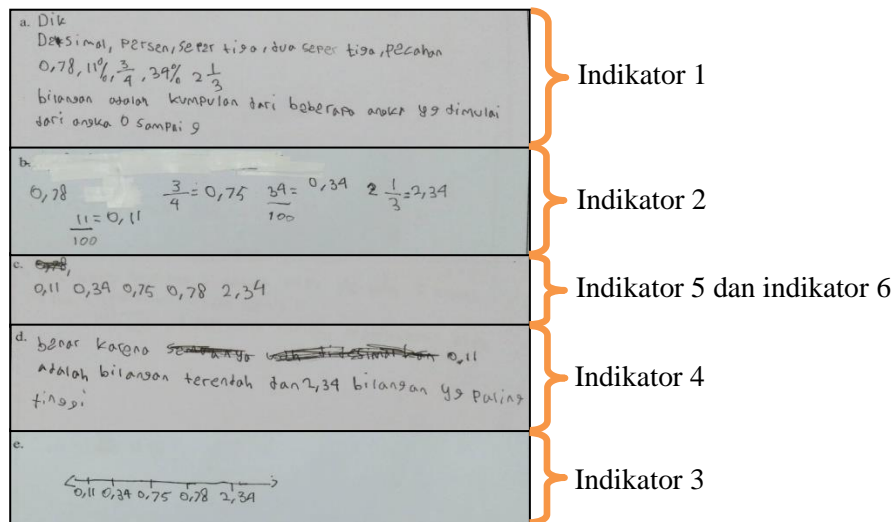 a. Dik
Desimal, Persen, seper tiga, dua seper tiga, pecahan
0,78, 11%, 3/4, 34% 2 1/3
bilangan adalah kumpulan dari beberapa angka yg dimulai
dari angka 0 sampai 9
Indikator 1
b.
0,78 3/4 = 0,75 34/100 = 0,34 2 1/3 = 2,34
11/100 = 0,11
Indikator 2
c.
0,11 0,34 0,75 0,78 2,34
Indikator 5 dan indikator 6
d. benar karena 0,11
adalah bilangan terendah dan 2,34 bilangan yg paling
tinggi
Indikator 4
e.
0,11 0,34 0,75 0,78 2,34
Indikator 3